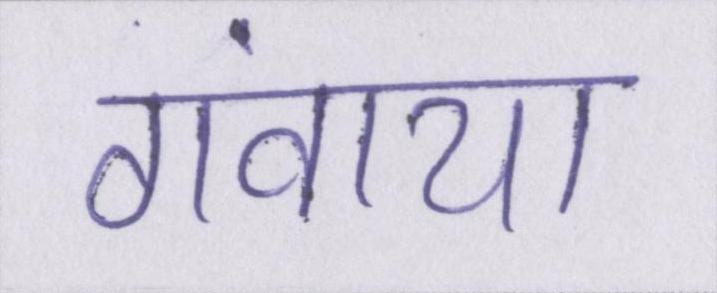 गंवाया